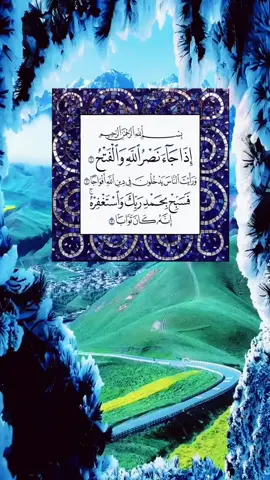 بِسْمِ اللَّهِ الرَّحْمَٰنِ الرَّحِيمِ
إِذَا جَاءَ نَصْرُ اللَّهِ وَالْفَتْحُ ١
وَرَأَيْتَ النَّاسَ يَدْخُلُونَ فِي دِينِ اللَّهِ أَفْوَاجًا ٢
فَسَبِّحْ بِحَمْدِ رَبِّكَ وَاسْتَغْفِرْهُ
إِنَّهُ كَانَ تَوَّابًا ٣